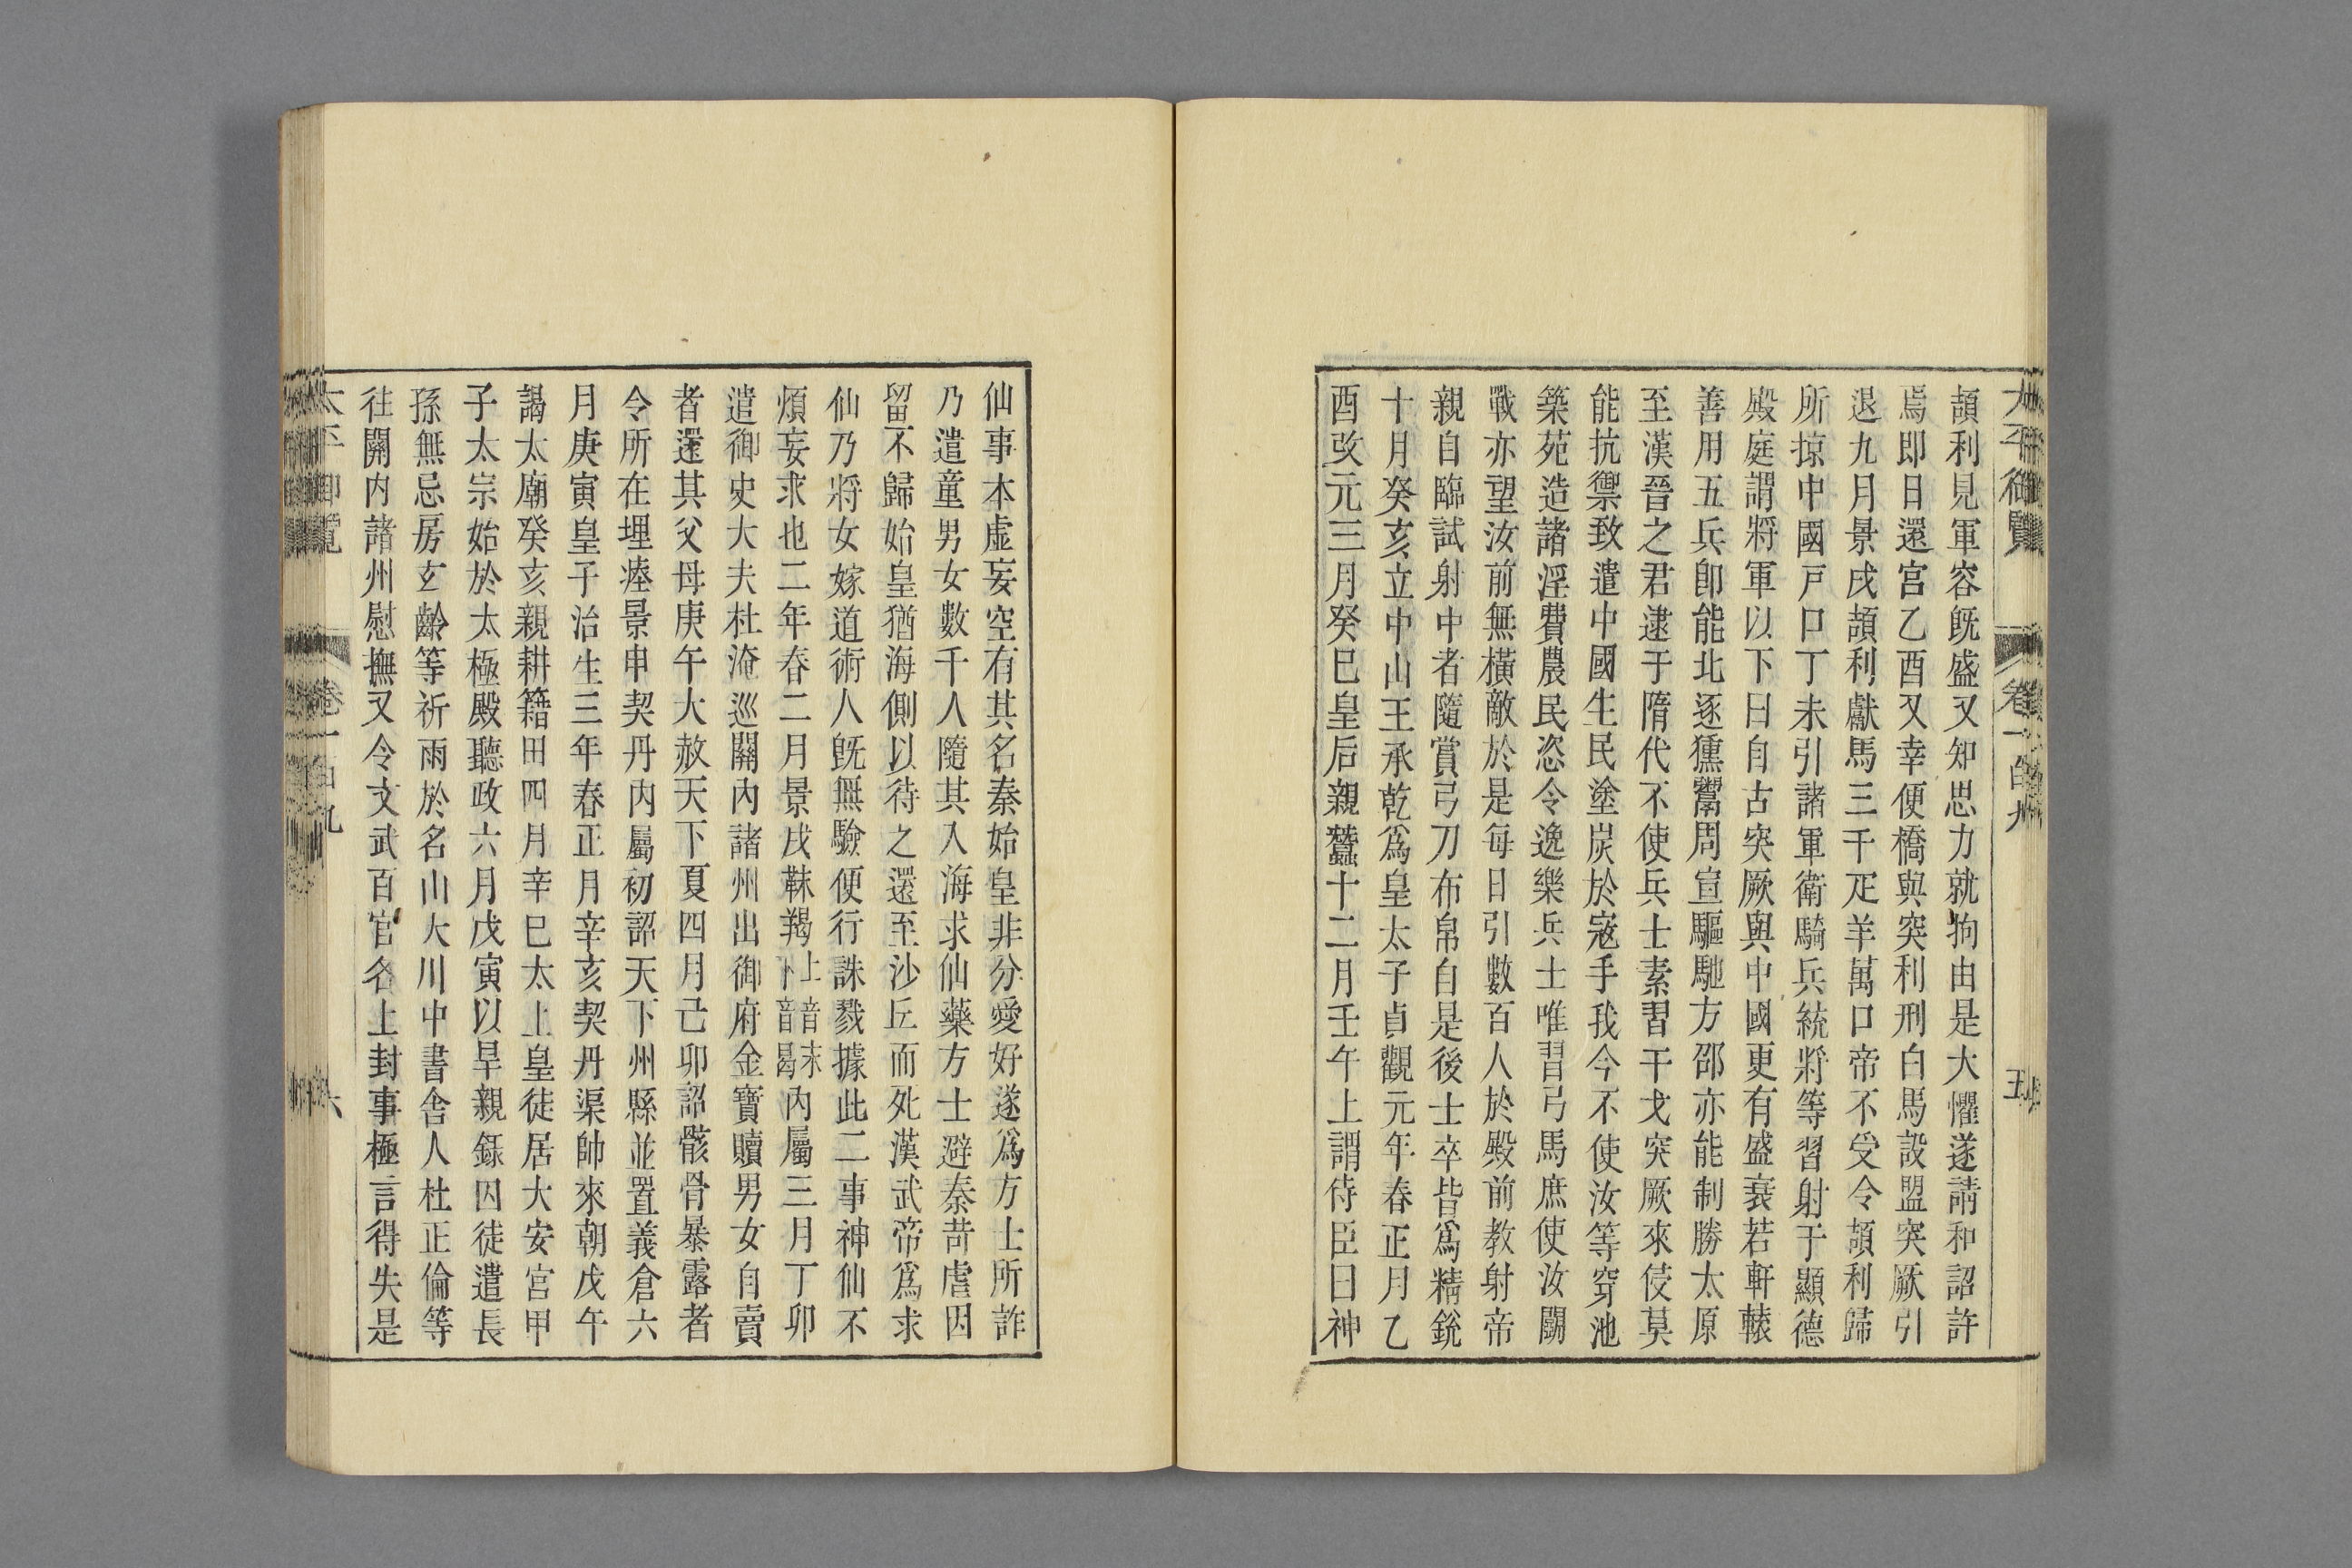 太平御覽 卷一百九 五
頡利見軍容既盛又知思力就狗由是大懼遂請和詔許
焉即日還宮乙酉又幸便橋與突利刑白馬設盟突厥引
退九月景戌頡利獻馬三千疋羊萬口帝不受令頡利歸
所掠中國戸口丁未引諸軍衛騎兵統將等習射于顯德
殿庭謂將軍以下曰自古突厥與中國更有盛衰若軒轅
善用五兵卽能北逐獯鬻周宣驅馳方邵亦能制勝太原
至漢晉之君逮于隋代不使兵士素習干戈突厥來侵莫
能抗禦致遣中國生民塗炭於寇手我今不使汝等穿池
築苑造諸淫費農民恣令逸樂兵士唯習弓馬庶使汝鬭
戰亦望汝前無橫敵於是每日引數百人於殿前教射帝
親自臨試射中者隨賞弓刀布帛自是後士卒皆爲精銳
十月癸亥立中山王承乾爲皇太子貞觀元年春正月乙
酉改元三月癸巳皇后親蠶十二月壬午上謂侍臣曰神
仙事本虛妄空有其名秦始皇非分愛好遂爲方士所詐
乃遣童男女數千人隨其入海求仙藥方士避秦苛虐因
留不歸始皇猶海側以待之還至沙丘而死漢武帝爲求
仙乃將女嫁道術人既無驗便行誅戮據此二事神仙不
煩妄求也二年春二月景戌靺羯上音末下音曷內屬三月丁卯
遣御史大夫杜淹巡關內諸州出御府金寶贖男女自賣
者還其父母庚午大赦天下夏四月己卯詔骸骨暴露者
令所在埋瘞景申契丹内屬初詔天下州縣並置義倉六
月庚寅皇子治生三年春正月辛亥契丹渠帥來朝戊午
謁太廟癸亥親耕籍田四月辛巳太上皇徒居大安宮甲
子太宗始於太極殿聽政六月戊寅以旱親錄囚徒遣長
孫無忌房玄齡等祈雨於名山大川中書舍人杜正倫等
往關内諸州慰撫又令文武百官各上封事極言得失是
太平御覽 卷一百九 六